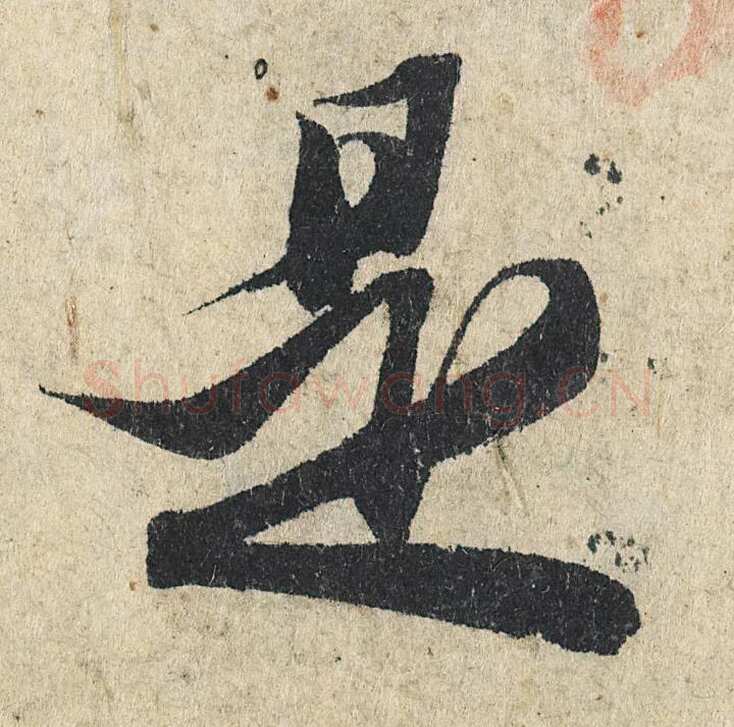 是
Shufawang.CN